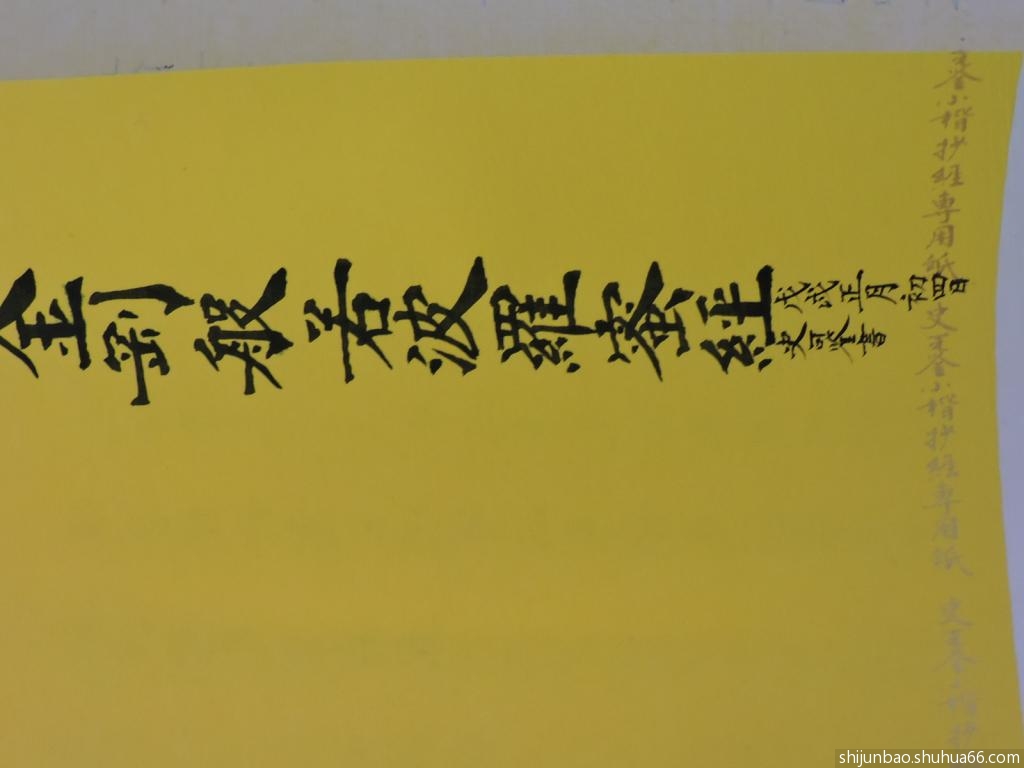 金剛般若波羅蜜經
戊戌正月初四日
小楷抄經專用紙
小楷抄經專用紙
shijunbao.shuhua66.com